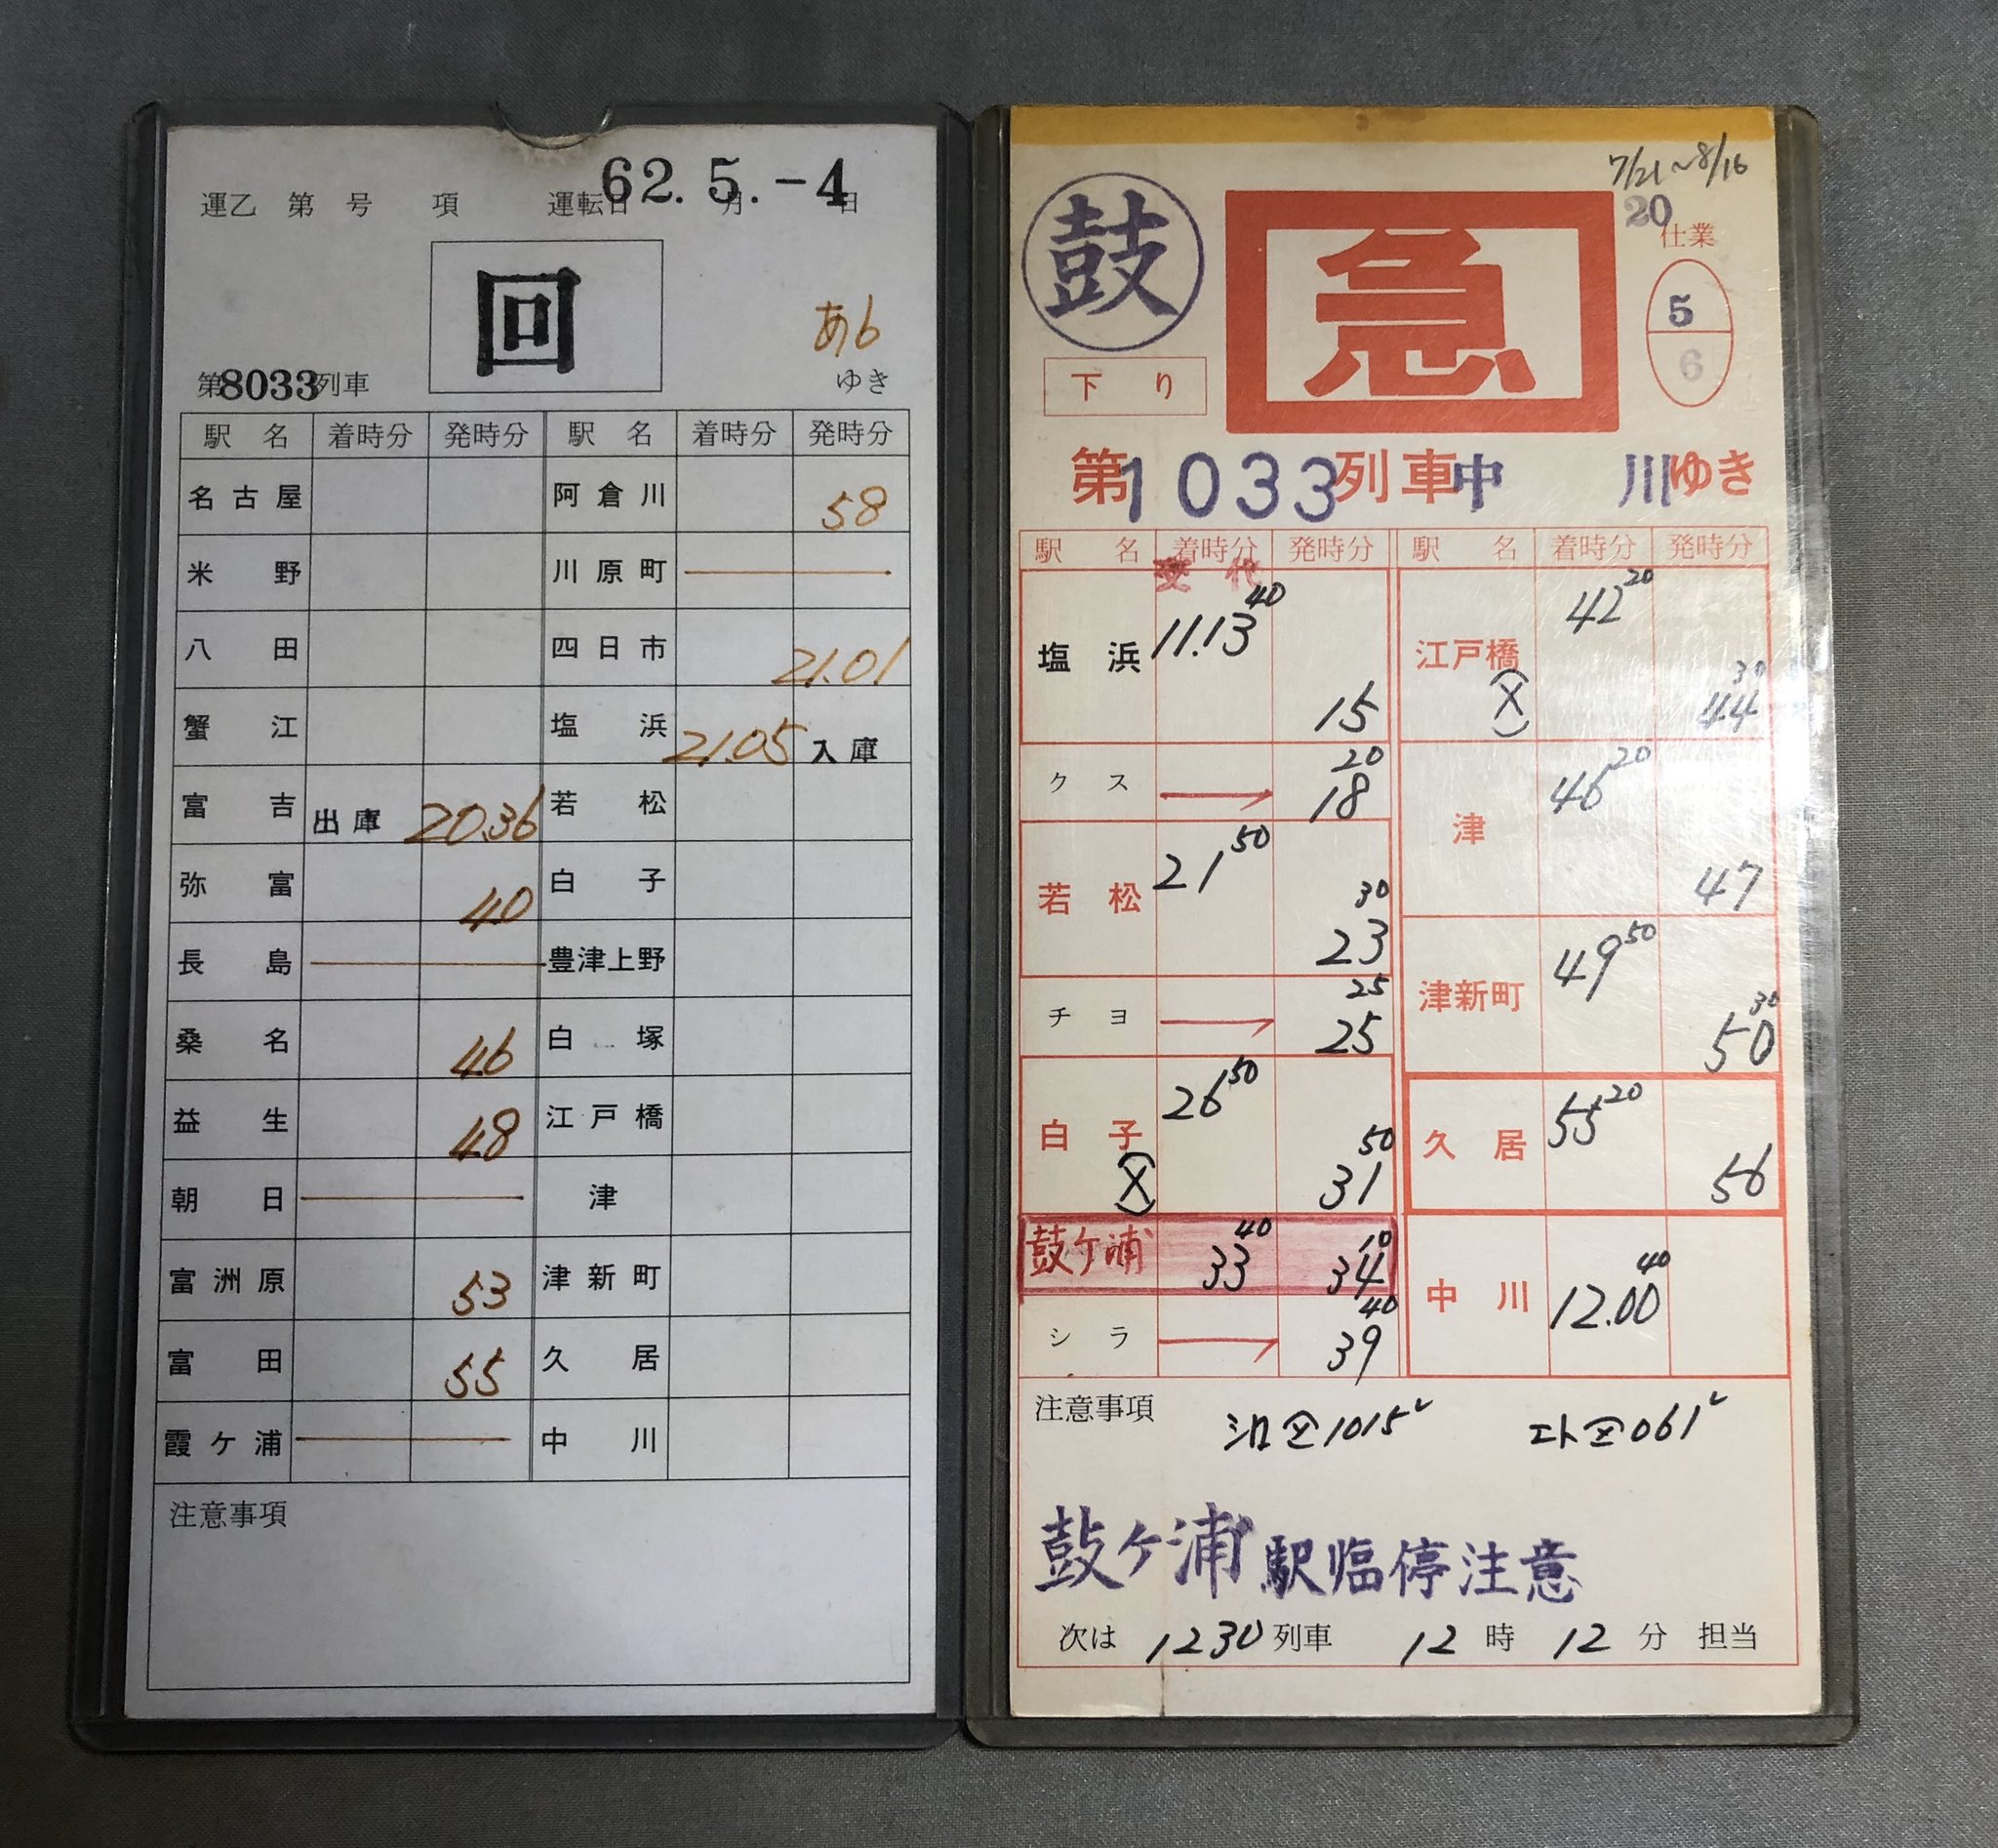 62.5.-4
運乙 第 号 項 運転日 月 日
回
あ6
第8033列車 ゆき
駅名 着時分 発時分 駅名 着時分 発時分
名古屋 阿倉川 58
米野 川原町
八田 四日市 21.01
蟹江 塩浜 21.05 入庫
富吉 出庫 20.36 若松
弥富 40 白子
長島 豊津上野
桑名 46 白塚
益生 48 江戸橋
朝日 津
富洲原 53 津新町
富田 55 久居
霞ケ浦 中川
注意事項
7/21~8/16
20
仕業
鼓
急
5
6
下り
第1033列車中川ゆき
駅名 着時分 発時分 駅名 着時分 発時分
交代
塩浜 11.13 40 15
クス 18 20
若松 21 50 23 30
チヨ 25 25
白子 26 50 31 50
鼓ケ浦 33 40 34 10
シラ 39 40
江戸橋 42 20 44 30
津 46 20 47
津新町 49 50 50 30
久居 55 20 56
中川 12.00 40
注意事項
シロ 1015 エト 061
鼓ケ浦駅臨停注意
次は 1230 列車 12 時 12 分 担当